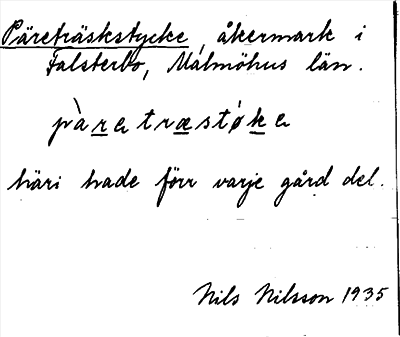 Päreträskstycke, åkermark i
Falsterbo, Malmöhus län.
pàretræstøke
häri hade förr varje gård del.
Nils Nilsson 1935